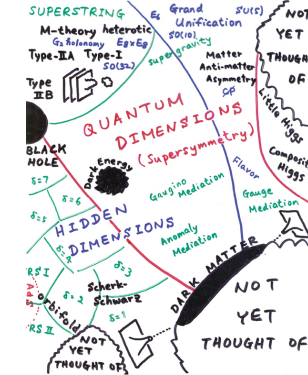 SUPERSTRING
M-theory heterotic
G₂ holonomy E₈xE₈
Type-IIA Type-I
SO(32)
Type
IIB
E₆ Grand
Unification
SO(10)
SU(5)
supergravity
Matter
Anti-matter
Asymmetry
NOT
YET
THOUGHT
OF
Little Higgs
Composite
Higgs
QUANTUM
DIMENSIONS
(Supersymmetry)
BLACK
HOLE
Dark Energy
Flavor
Gaugino
Mediation
Gauge
Mediation
Anomaly
Mediation
δ=7
δ=6
δ=5
δ=4
δ=3
δ=2
δ=1
HIDDEN
DIMENSIONS
Scherk-
Schwarz
RS I
AdS
RS II
orbifold
DARK MATTER
NOT
YET
THOUGHT OF
NOT
YET
THOUGHT OF